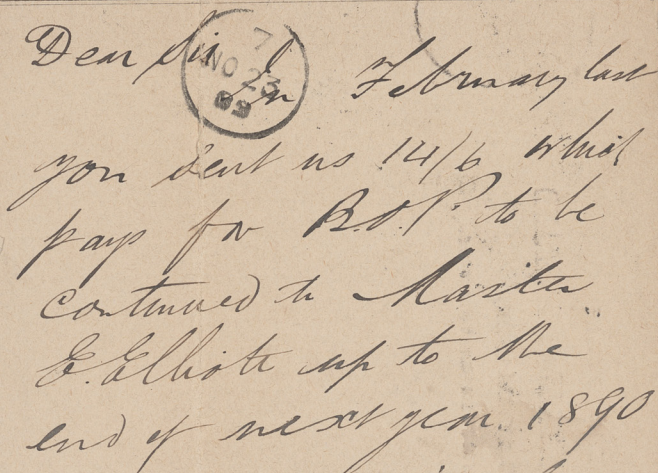 Dear Sir In February last
you sent us 14/6 which
pays for B.O.P. to be
continued to Master
E. Elliott up to the
end of next year 1890
7
NO 23
89